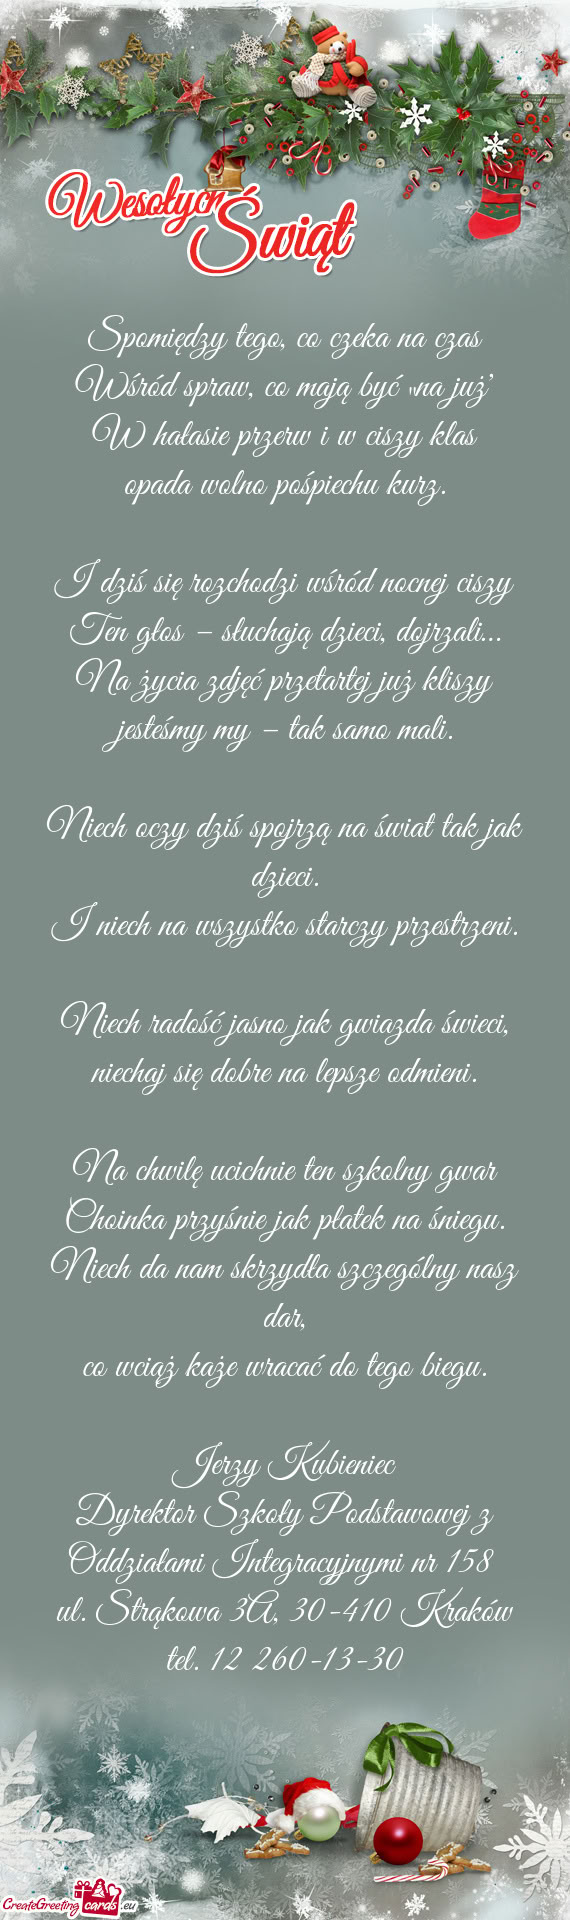 Wesołych
Świąt
Spomiędzy tego, co czeka na czas
Wśród spraw, co mają być "na już"
W hałasie przerw i w ciszy klas
opada wolno pośpiechu kurz.
I dziś się rozchodzi wśród nocnej ciszy
Ten głos – słuchają dzieci, dojrzali...
Na życia zdjęć przetartej już kliszy
jesteśmy my – tak samo mali.
Niech oczy dziś spojrzą na świat tak jak
dzieci.
I niech na wszystko starczy przestrzeni.
Niech radość jasno jak gwiazda świeci,
niechaj się dobre na lepsze odmieni.
Na chwilę ucichnie ten szkolny gwar
Choinka przyśnie jak płatek na śniegu.
Niech da nam skrzydła szczególny nasz
dar,
co wciąż każe wracać do tego biegu.
Jerzy Kubieniec
Dyrektor Szkoły Podstawowej z
Oddziałami Integracyjnymi nr 158
ul. Strąkowa 3A, 30-410 Kraków
tel. 12 260-13-30
CreateGreetingcards.eu